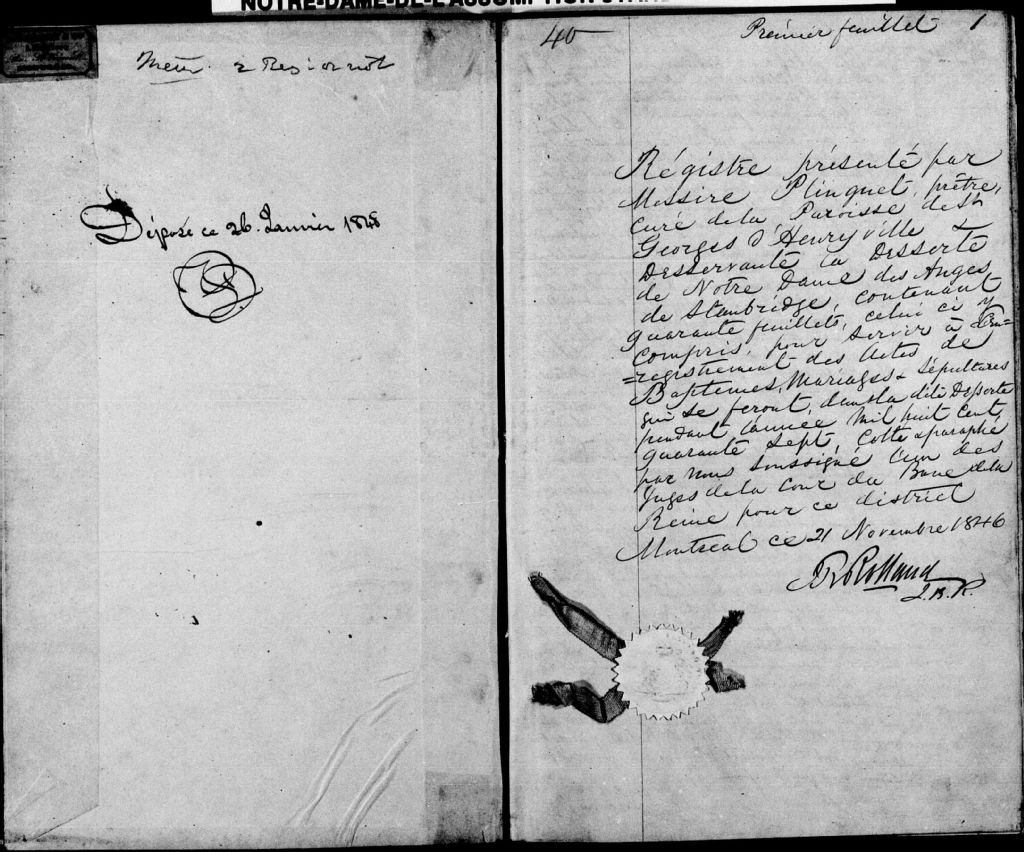 NOTRE-DAME-DE-L'ASSOMPTION
Déposé ce 26. Janvier 1848
40
Premier feuillet 1
Régistre présenté par
Messire Plinguet, prêtre,
Curé de la Paroisse de St
Georges d'Henryville &
Desservante la Desserte
de Notre Dame des Anges
de Stanbridge, contenant
quarante feuillets, celui ci y
compris, pour servir à l'En=
=registrement des Actes de
Baptemes, Mariages & Sépultures
qui se feront, dans la dite Desserte
pendant l'année Mil huit Cent,
quarante Sept, Cotté & paraphé
par nous Soussigné l'un des
Juges de la Cour du Banc de la
Reine pour ce district
Montreal ce 21 Novembre 1846
Rolland
J.B.R.